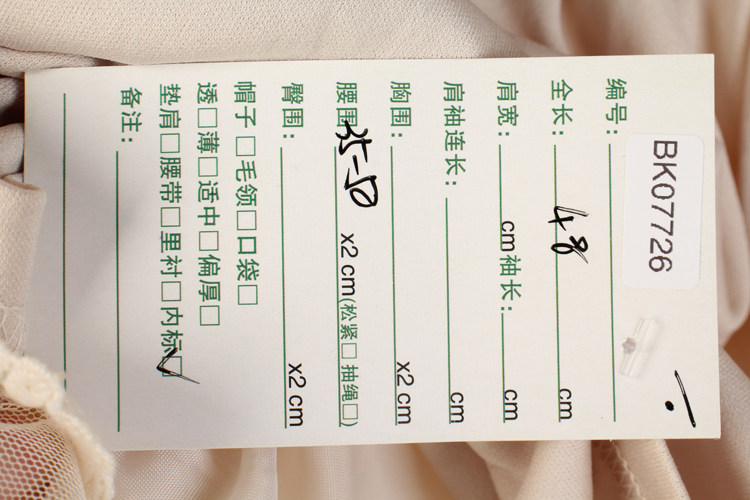 编号: BK07726
全长: 48 cm
肩宽: cm 袖长: cm
肩袖连长: cm
胸围: x2 cm
腰围: 35-50 x2 cm (松紧□ 抽绳□)
臀围: x2 cm
帽子□ 毛领□ 口袋□
透□ 薄□ 适中□ 偏厚□
垫肩□ 腰带□ 里衬□ 内标☑
备注: